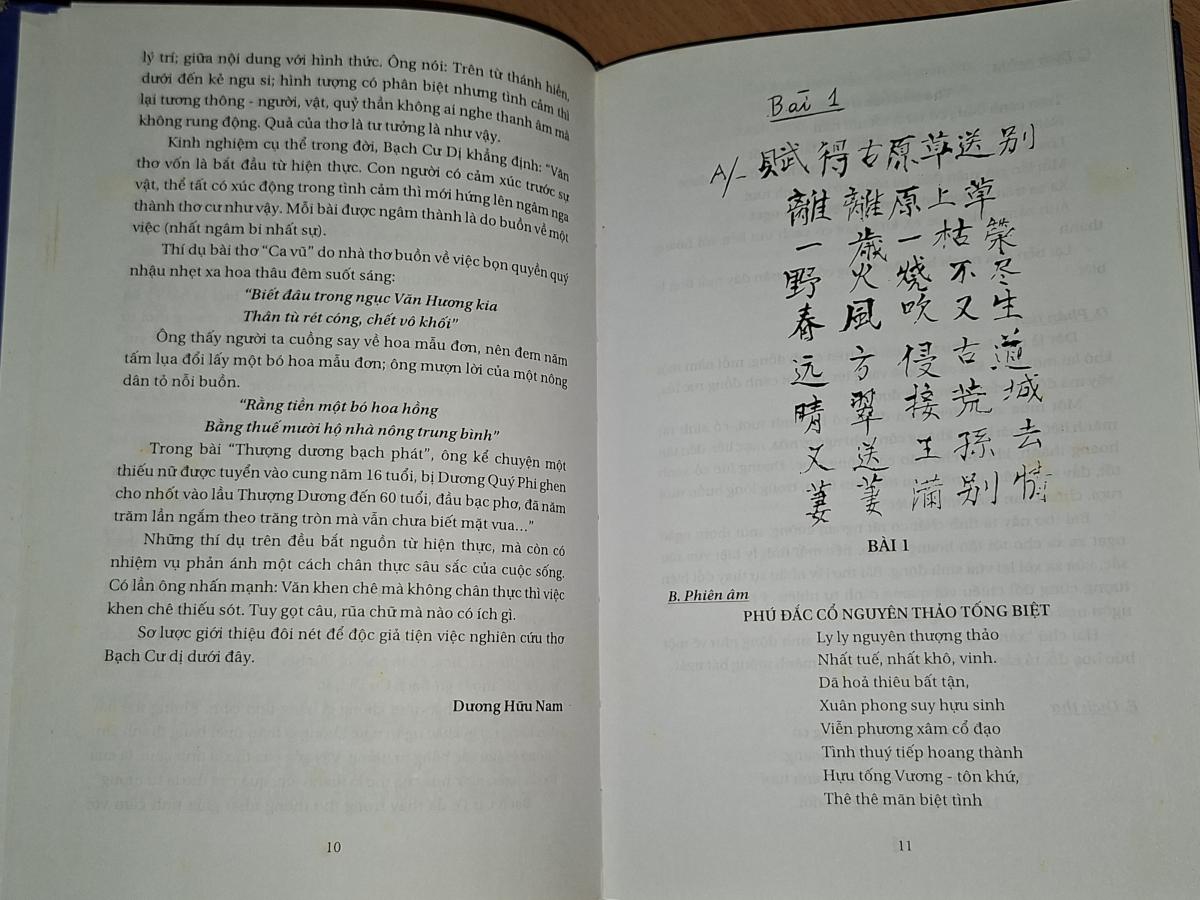 lý trí; giữa nội dung với hình thức. Ông nói: Trên từ thánh hiền,
dưới đến kẻ ngu si; hình tượng có phân biệt nhưng tình cảm thì
lại tương thông - người, vật, quỷ thần không ai nghe thanh âm mà
không rung động. Quả của thơ là tư tưởng là như vậy.
Kinh nghiệm cụ thể trong đời, Bạch Cư Dị khẳng định: "Văn
thơ vốn là bắt đầu từ hiện thực. Con người có cảm xúc trước sự
vật, thể tất có xúc động trong tình cảm thì mới hứng lên ngâm nga
thành thơ cư như vậy. Mỗi bài được ngâm thành là do buồn về một
việc (nhất ngâm bi nhất sự).
Thí dụ bài thơ "Ca vũ" do nhà thơ buồn về việc bọn quyền quý
nhậu nhẹt xa hoa thâu đêm suốt sáng:
"Biết đâu trong ngục Văn Hương kia
Thân tù rét cóng, chết vô khối"
Ông thấy người ta cuồng say về hoa mẫu đơn, nên đem năm
tấm lụa đổi lấy một bó hoa mẫu đơn; ông mượn lời của một nông
dân tỏ nỗi buồn.
"Rằng tiền một bó hoa hồng
Bằng thuế mười hộ nhà nông trung bình"
Trong bài "Thượng dương bạch phát", ông kể chuyện một
thiếu nữ được tuyển vào cung năm 16 tuổi, bị Dương Quý Phi ghen
cho nhốt vào lầu Thượng Dương đến 60 tuổi, đầu bạc phơ, đã năm
trăm lần ngắm theo trăng tròn mà vẫn chưa biết mặt vua..."
Những thí dụ trên đều bắt nguồn từ hiện thực, mà còn có
nhiệm vụ phản ánh một cách chân thực sâu sắc của cuộc sống.
Có lần ông nhấn mạnh: Văn khen chê mà không chân thực thì việc
khen chê thiếu sót. Tuy gọt câu, rũa chữ mà nào có ích gì.
Sơ lược giới thiệu đôi nét để độc giả tiện việc nghiên cứu thơ
Bạch Cư dị dưới đây.
Dương Hữu Nam
10
Bài 1
A/- 賦得古原草送别
離離原上草
一歲一枯榮
野火燒不尽
春風吹又生
远方侵古道
晴翠接荒城
又送王孫去
萋萋滿别情
BÀI 1
B. Phiên âm
PHÚ ĐẮC CỔ NGUYÊN THẢO TỐNG BIỆT
Ly ly nguyên thượng thảo
Nhất tuế, nhất khô, vinh.
Dã hoả thiêu bất tận,
Xuân phong suy hựu sinh
Viễn phương xâm cổ đạo
Tình thuý tiếp hoang thành
Hựu tống Vương - tôn khứ,
Thê thê mãn biệt tình
11